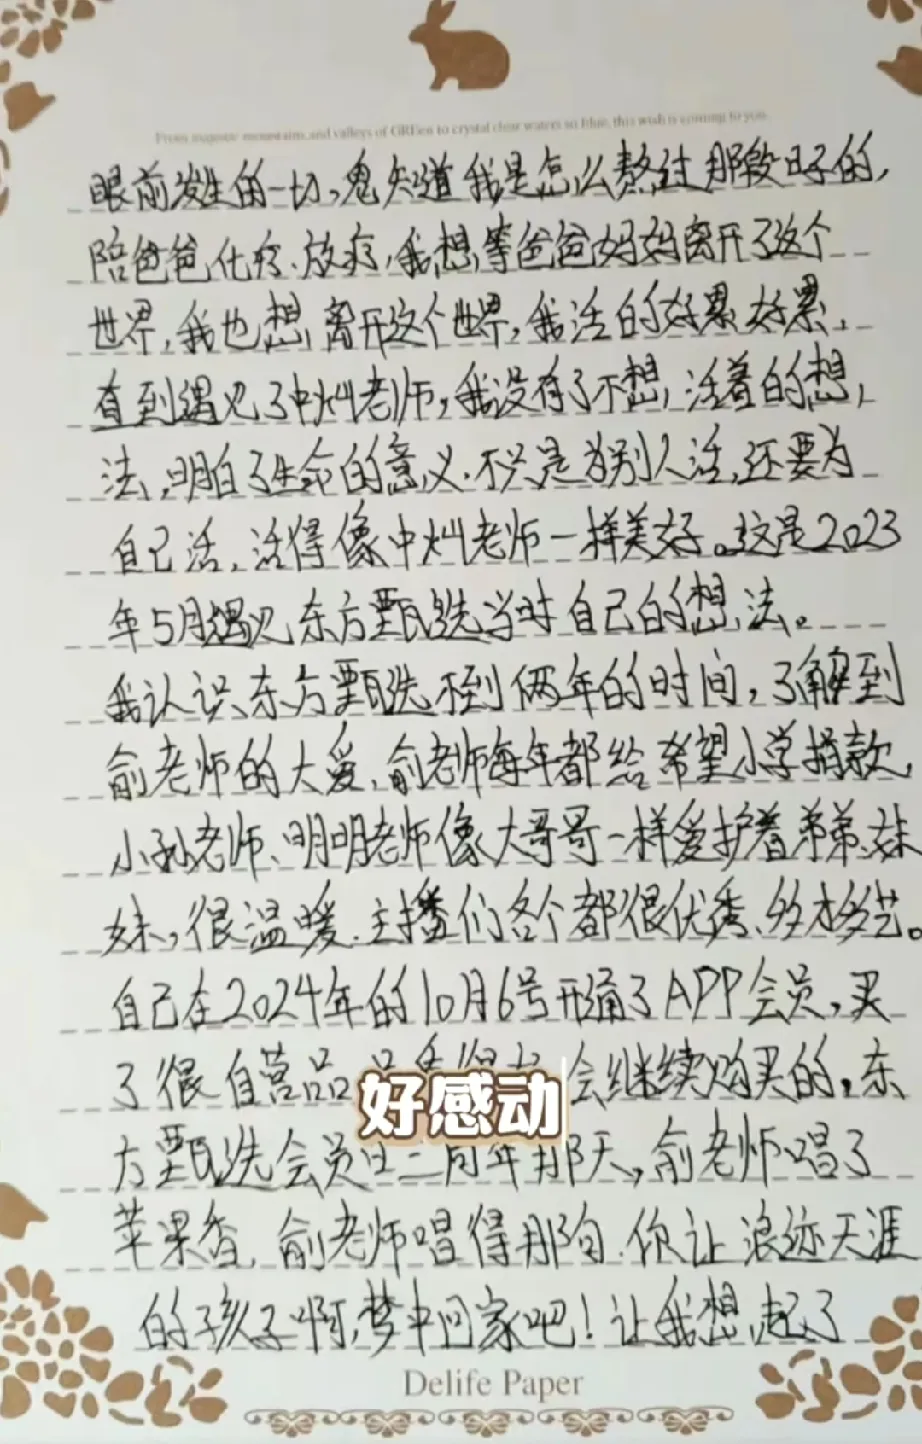 From majestic mountains and valleys of GREen to crystal clear waters so blue, this wish is coming to you.
眼前发生的一切,鬼知道我是怎么熬过那段日子的,
陪爸爸化疗、放疗,我想等爸爸妈妈离开了这个
世界,我也想离开这个世界,我活的好累好累,
直到遇见了中灿老师,我没有了不想活着的想
法,明白了生命的意义.不只是为别人活,还要为
自己活,活得像中灿老师一样美好。这是2023
年5月遇见东方甄选当时自己的想法。
我认识东方甄选不到俩年的时间,了解到
俞老师的大爱,俞老师每年都给希望小学捐款,
小孙老师、明明老师像大哥哥一样爱护着弟弟、妹
妹,很温暖.主播们各个都很优秀、多才多艺。
自己在2024年的10月6号开通了APP会员,买
了很自营品 会继续购买的,东
好感动
方甄选会员日二周年那天,俞老师唱了
苹果香,俞老师唱得那句.你让浪迹天涯
的孩子啊,梦中回家吧!让我想起了
Delife Paper